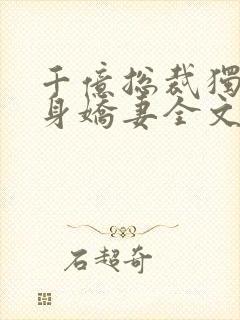 千億总裁獨
身嬌妻全文
石超奇